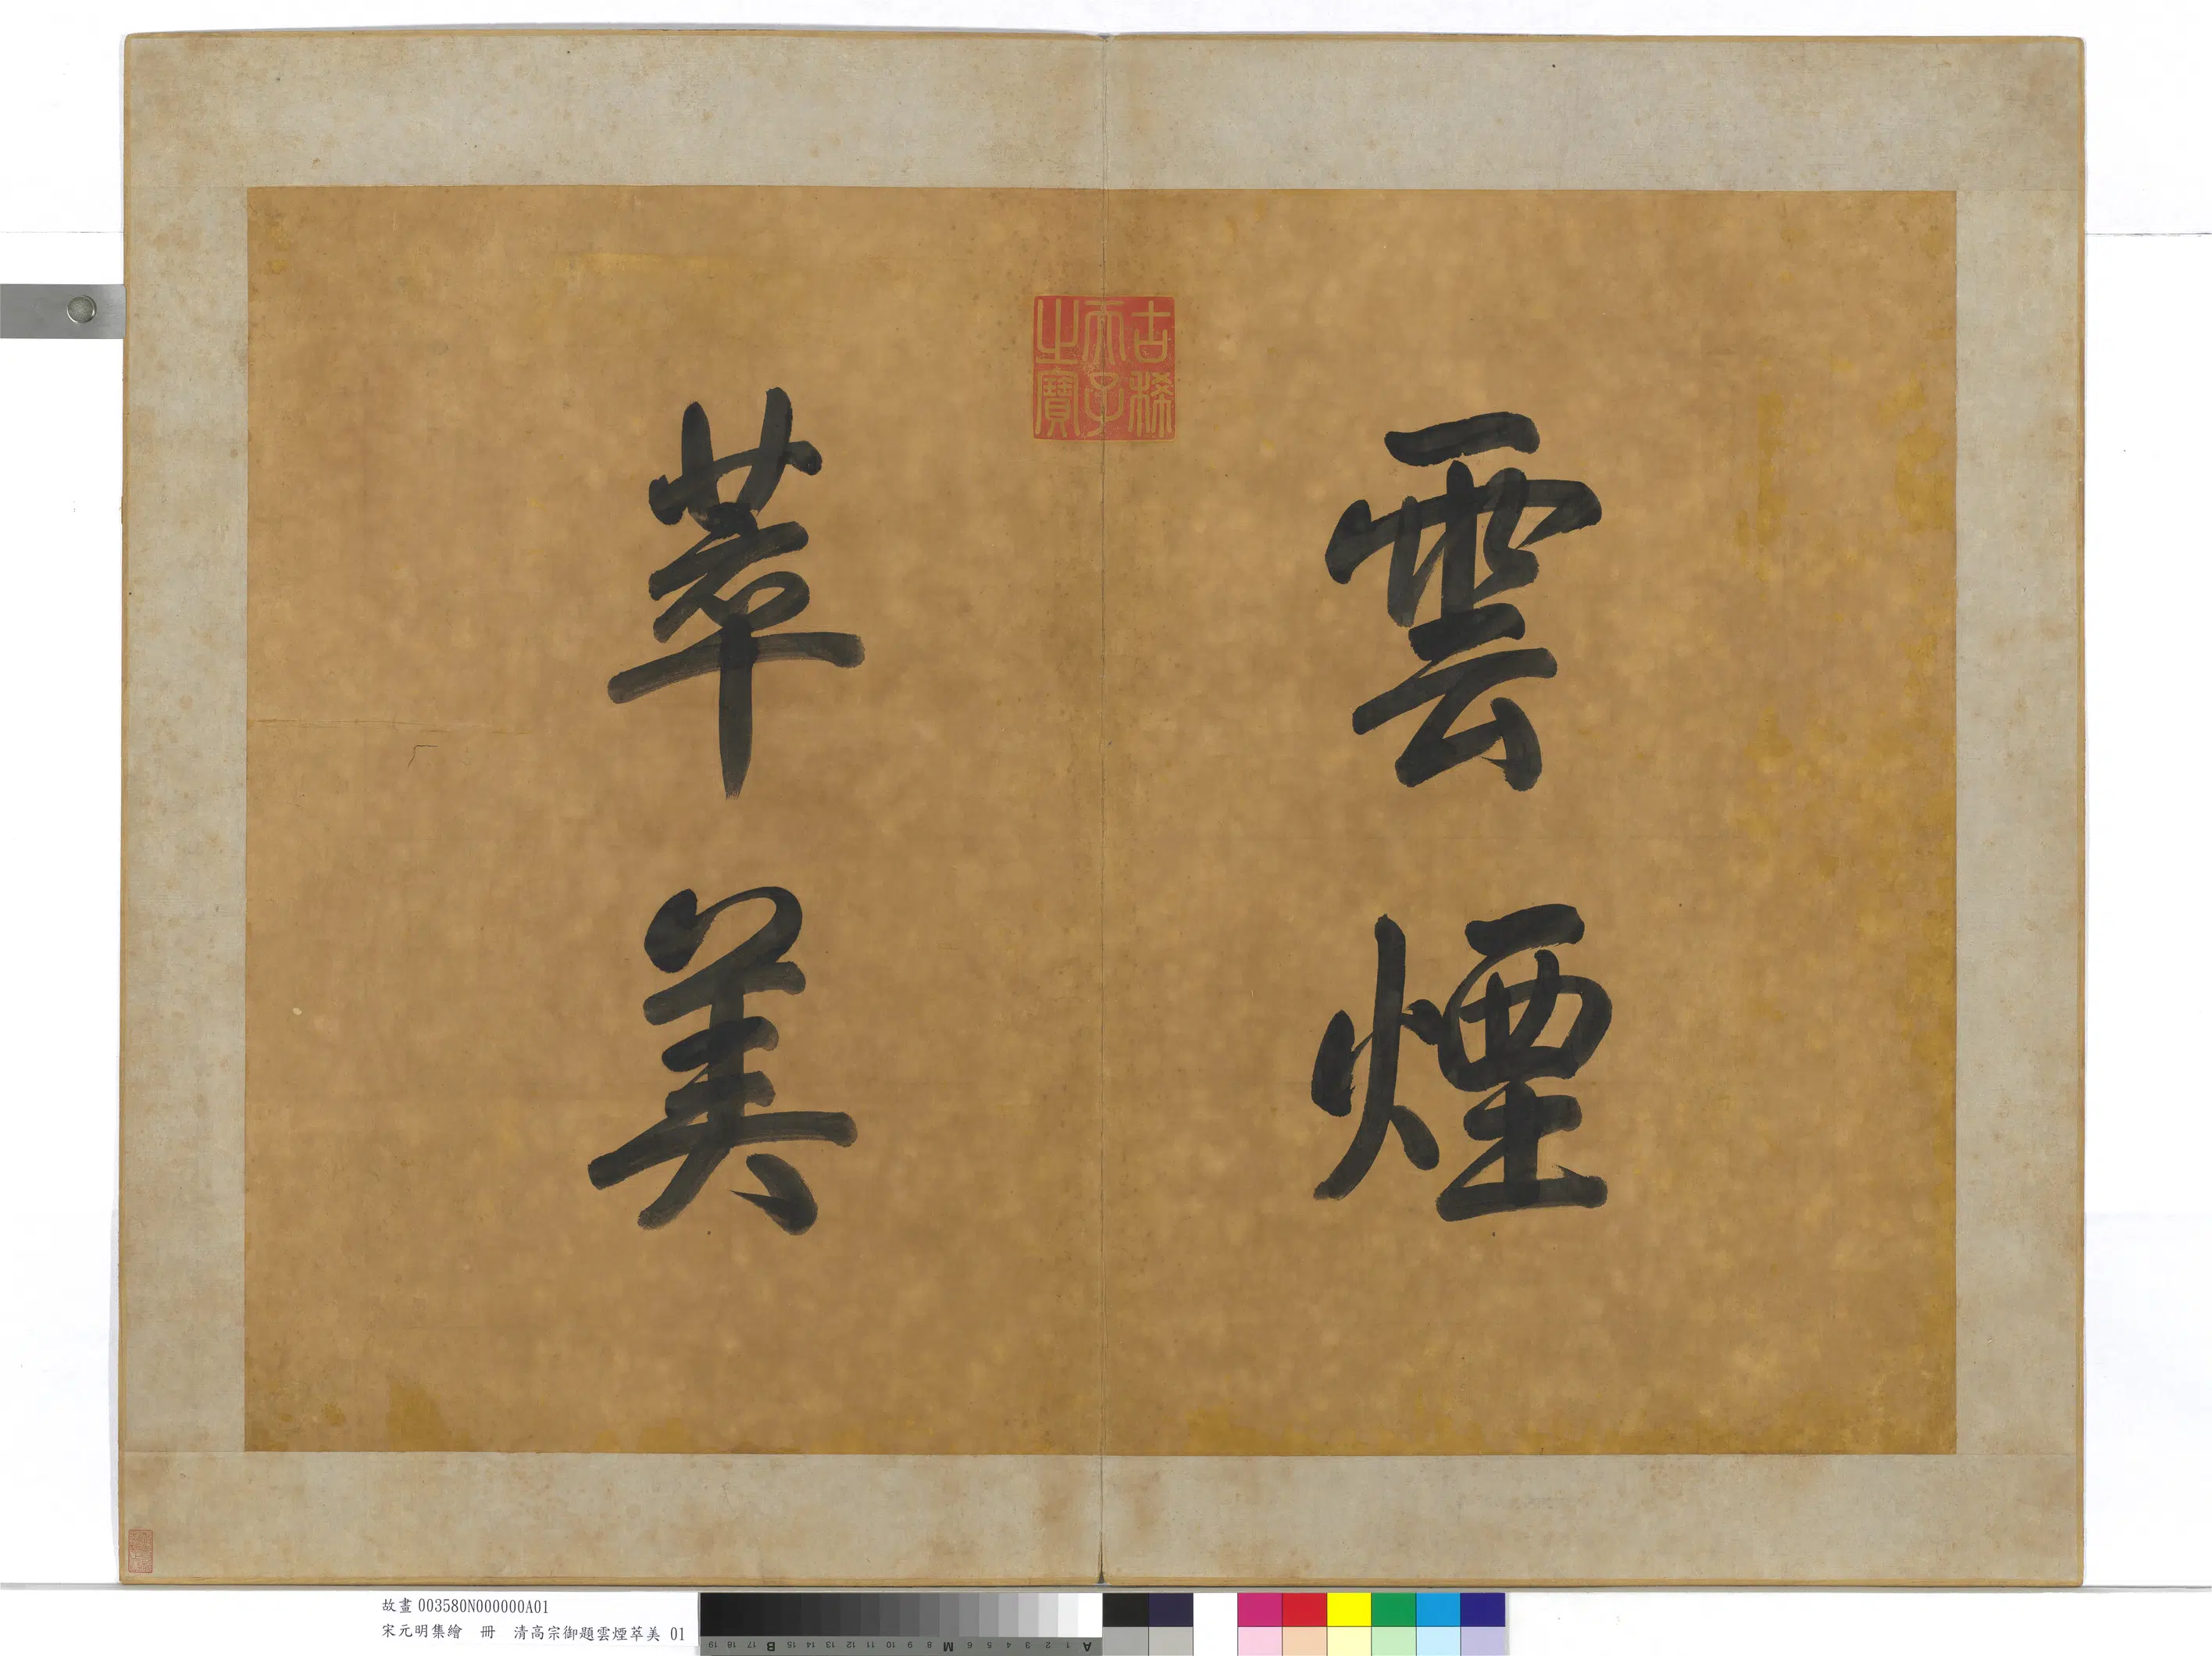 雲煙
萃美
古稀
天子
之寶
故畫 003580N000000A01
宋元明集繪 冊 清高宗御題雲煙萃美 01
A 1 2 3 4 5 6 M 8 9 10 11 12 13 14 15 B 17 18 19